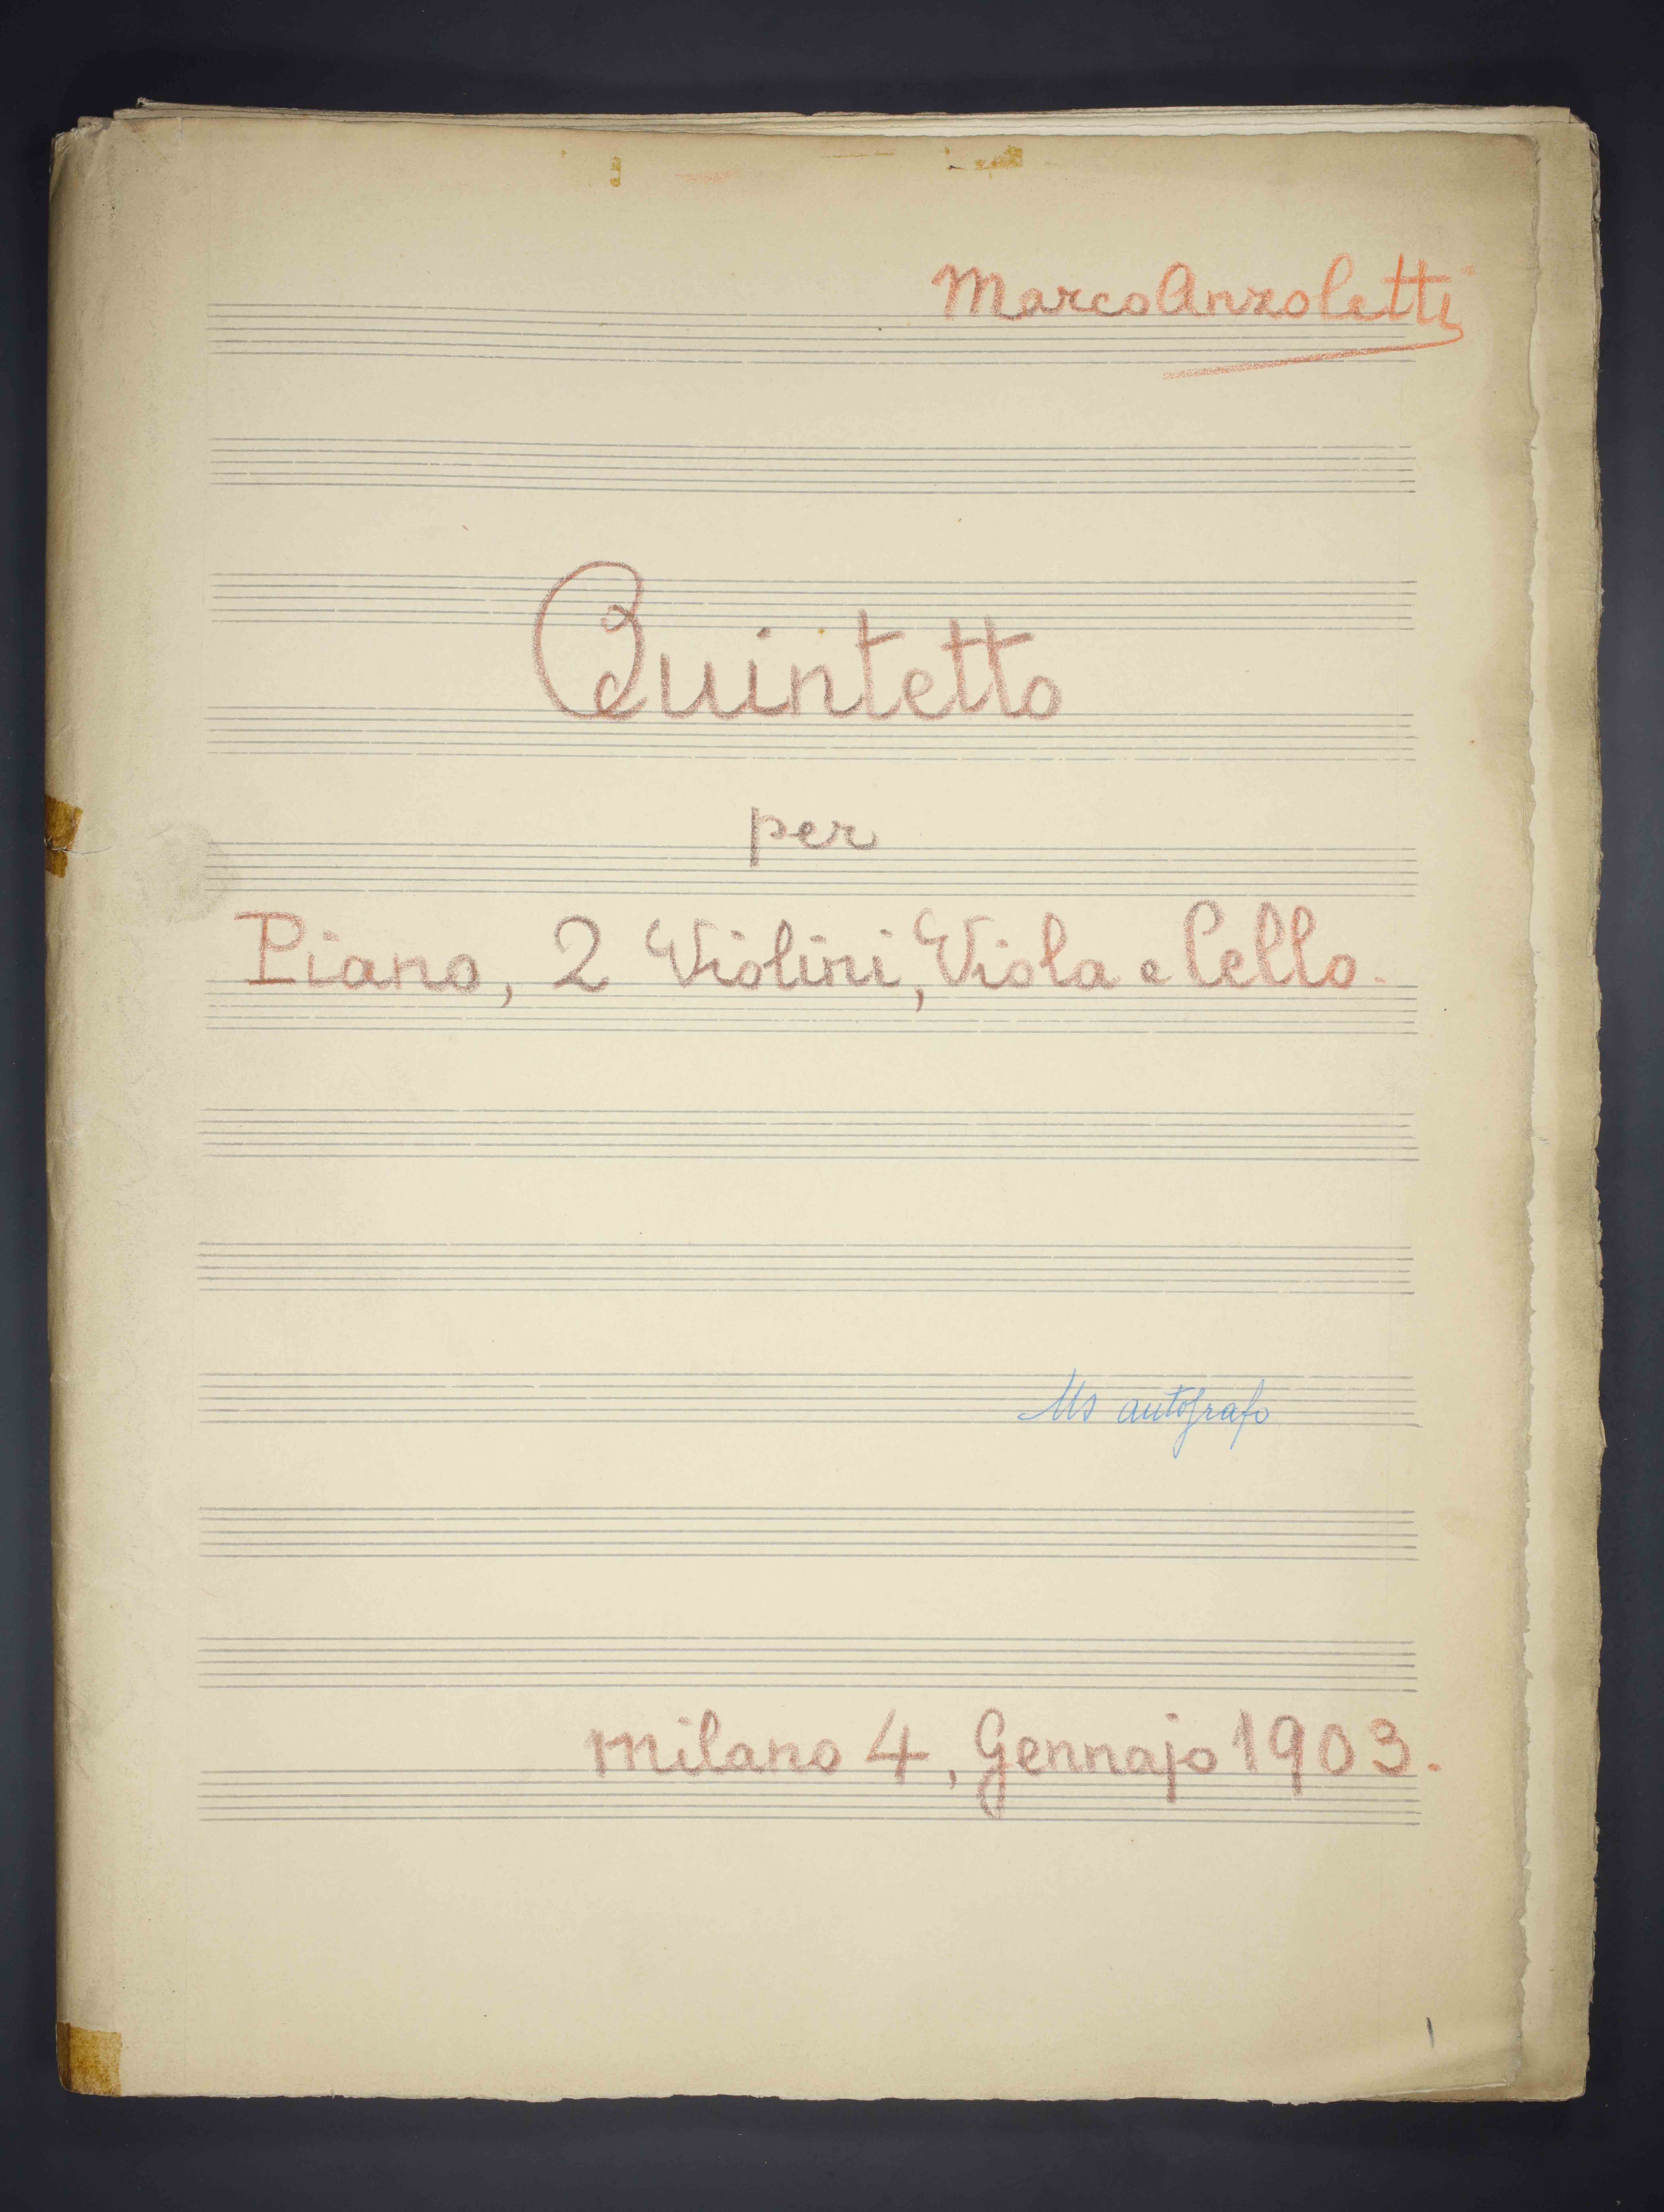 Marco Anzoletti
Quintetto
per
Piano, 2 Violini, Viola e Cello.
Ms autografo
Milano 4, Gennajo 1903.